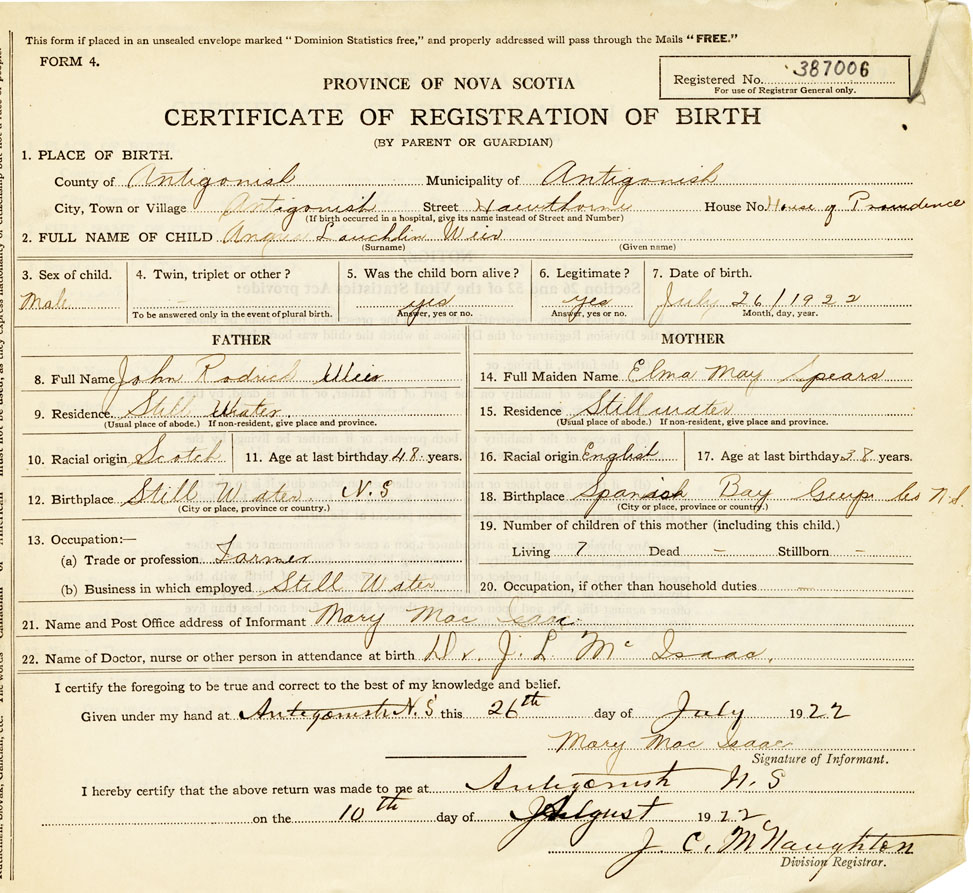 This form if placed in an unsealed envelope marked "Dominion Statistics free," and properly addressed will pass through the Mails "FREE."
FORM 4.
Registered No. 387006
For use of Registrar General only.
PROVINCE OF NOVA SCOTIA
CERTIFICATE OF REGISTRATION OF BIRTH
(BY PARENT OR GUARDIAN)
1. PLACE OF BIRTH.
County of Antigonish Municipality of Antigonish
City, Town or Village Antigonish Street Hawthorne House No. House of Providence
(If birth occurred in a hospital, give its name instead of Street and Number)
2. FULL NAME OF CHILD Angus Lauchlin Weir
(Surname) (Given name)
3. Sex of child. 4. Twin, triplet or other? 5. Was the child born alive? 6. Legitimate? 7. Date of birth.
Male - yes yes July 26/1922
To be answered only in the event of plural birth. Answer, yes or no. Answer, yes or no. Month, day, year.
FATHER MOTHER
8. Full Name John Rodrick Weir 14. Full Maiden Name Elma May Spears
9. Residence Still Water 15. Residence Stillwater
(Usual place of abode.) If non-resident, give place and province. (Usual place of abode.) If non-resident, give place and province.
10. Racial origin Scotch 11. Age at last birthday 48 years. 16. Racial origin English 17. Age at last birthday 38 years.
12. Birthplace Still Water N.S 18. Birthplace Spanish Bay Co N.S.
(City or place, province or country.) (City or place, province or country.)
19. Number of children of this mother (including this child.)
13. Occupation:—
Living 7 Dead - Stillborn -
(a) Trade or profession Farmer
(b) Business in which employed Still Water 20. Occupation, if other than household duties -
21. Name and Post Office address of Informant Mary Mac Isaac
22. Name of Doctor, nurse or other person in attendance at birth Dr. J. L. Mc Isaac.
I certify the foregoing to be true and correct to the best of my knowledge and belief.
Given under my hand at Antigonish N.S this 26th day of July 1922
Mary Mac Isaac
Signature of Informant.
I hereby certify that the above return was made to me at Antigonish N.S
on the 10th day of August 1922
J. C. McNaughton
Division Registrar.